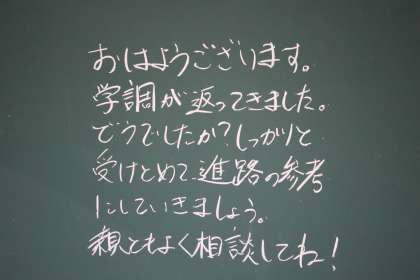 おはようございます。
学調が返ってきました。
どうでしたか?しっかりと
受けとめて、進路の参考
にしていきましょう。
親ともよく相談してね!